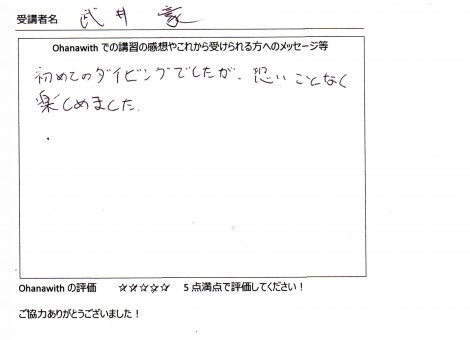 受講者名 武井 豪
Ohanawith での講習の感想やこれから受けられる方へのメッセージ等
初めてのダイビングでしたが、恐いことなく
楽しめました.
Ohanawith の評価 ☆☆☆☆☆ 5 点満点で評価してください！
ご協力ありがとうございました！